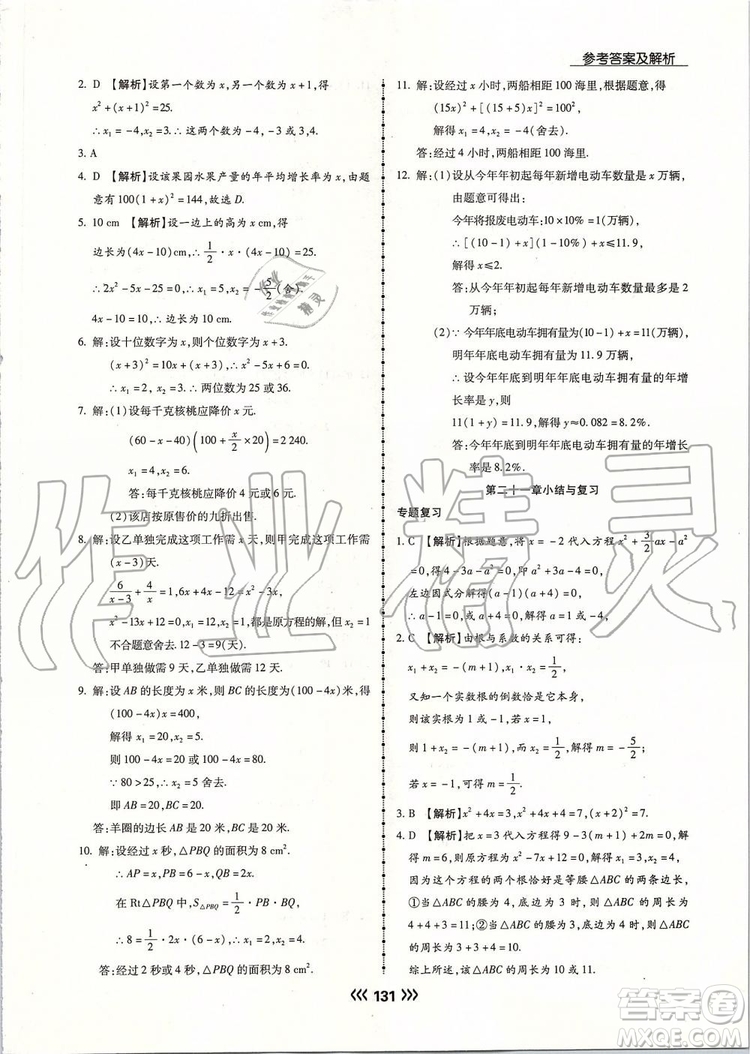 参考答案及解析
2. D 【解析】设第一个数为 x,另外一个数为 x+1,得
x²+(x+1)²=25.
∴x₁=-4,x₂=3.∴这两个数为-4,-3或3,4.
3. A
4. D 【解析】设该果园水果产量的年平均增长率为 x,由题
意有100(1+x)²=144,故选D.
5. 10 cm 【解析】设一边上的高为 x cm,得
边长为(4x-10)cm,∴1/2·x·(4x-10)=25.
∴2x²-5x-25=0.∴x₁=5,x₂=-5/2(舍).
4x-10=10.∴边长为10 cm.
6. 解:设十位数字为 x,则个位数字为 x+3.
(x+3)²=10x+(x+3).∴x²-5x+6=0.
∴x₁=2,x₂=3.∴两位数为25或36.
7. 解:(1)设每千克核桃应降价 x 元.
(60-x-40)(100+x/2×20)=2 240.
x₁=4,x₂=6.
答:每千克核桃应降价4元或6元.
(2)该店按原售价的九折出售.
8. 解:设乙单独完成这项工作需 x 天,则甲单独完成这项工作需
(x-3)天.
6/(x-3)+4/x=1,6x+4x-12=x²-3x,
x²-13x+12=0,x₁=12,x₂=1,都是原方程的解,但1
不合题意舍去.∴12-3=9(天).
答:甲单独做需9天,乙单独做需12天.
9. 解:设AB的长度为 x 米,则BC的长度为(100-4x)米,得
(100-4x)x=400,
解得 x₁=20,x₂=5.
则100-4x=20或100-4x=80.
∵80>25,∴x₂=5舍去.
即AB=20,BC=20.
答:羊圈的边长AB=20米,BC=20米.
10. 解:设经过 x 秒,△PBQ的面积为8 cm².
∴AP=x,PB=6-x,QB=2x.
在Rt△PBQ中,S△PBQ=1/2·PB·QB,
∴8=1/2·2x·(6-x).∴x₁=2,x₂=4.
答:经过2秒或4秒,△PBQ的面积为8 cm².
11. 解:设经过 x 小时,两船相距100海里,根据题意,得
(15x)²+[(15+5)x]²=100²,
解得 x₁=4,x₂=-4(舍去).
答:经过4小时,两船相距100海里.
12. 解:(1)设从今年年初起每年新增电动车数量是 x 万辆,
由题意可得出:
今年将报废电动车:10×10%=1(万辆),
∴[(10-1)+x](1-10%)+x≤11.9,
解得 x≤2.
答:从今年年初起每年新增电动车数量最多是2
万辆.
(2)∵今年年底电动车拥有量为(10-1)+x=11(万辆),
明年年底电动车拥有量为11.9万辆,
∴设今年年底到明年年底电动车拥有量的年增
长率是 y,则
11(1+y)=11.9,解得 y≈0.082=8.2%.
答:今年年底到明年年底电动车拥有量的年增长
率是8.2%.
第二十一章小结与复习
专题复习
1. C 【解析】根据题意,将 x=-2代入方程 x²+3/2ax-a²
=0,得4-3a-a²=0,即a²+3a-4=0,
左边因式分解得(a-1)(a+4)=0,
∴a-1=0,或a+4=0,解得a=1或-4.
2. C 【解析】由根与系数的关系可得:
x₁+x₂=-(m+1),x₁·x₂=1/2,
又知一个实数根的倒数恰是它本身,
则该实数根为1或-1,若x=1,
则1+x₂=-(m+1),x₂=1/2,可得m=-5/2;
若x=-1,可得m=1/2.
3. B 【解析】x²+4x=3,x²+4x+4=7,(x+2)²=7.
4. D 【解析】把 x=3代入方程得9-3(m+1)+2m=0,解
得m=6,则原方程为x²-7x+12=0,解得x₁=3,x₂=4.
因为这个方程的两个根恰好是等腰△ABC的两条边长,
①当△ABC的腰为4,底边为3时,则△ABC的周长为
4+4+3=11;②当△ABC的腰为3,底边为4时,则△ABC
的周长为3+3+4=10.
综上所述,该△ABC的周长为10或11.
《《 131 》》
作业精灵
作业精灵
答案圈
MXQE.COM